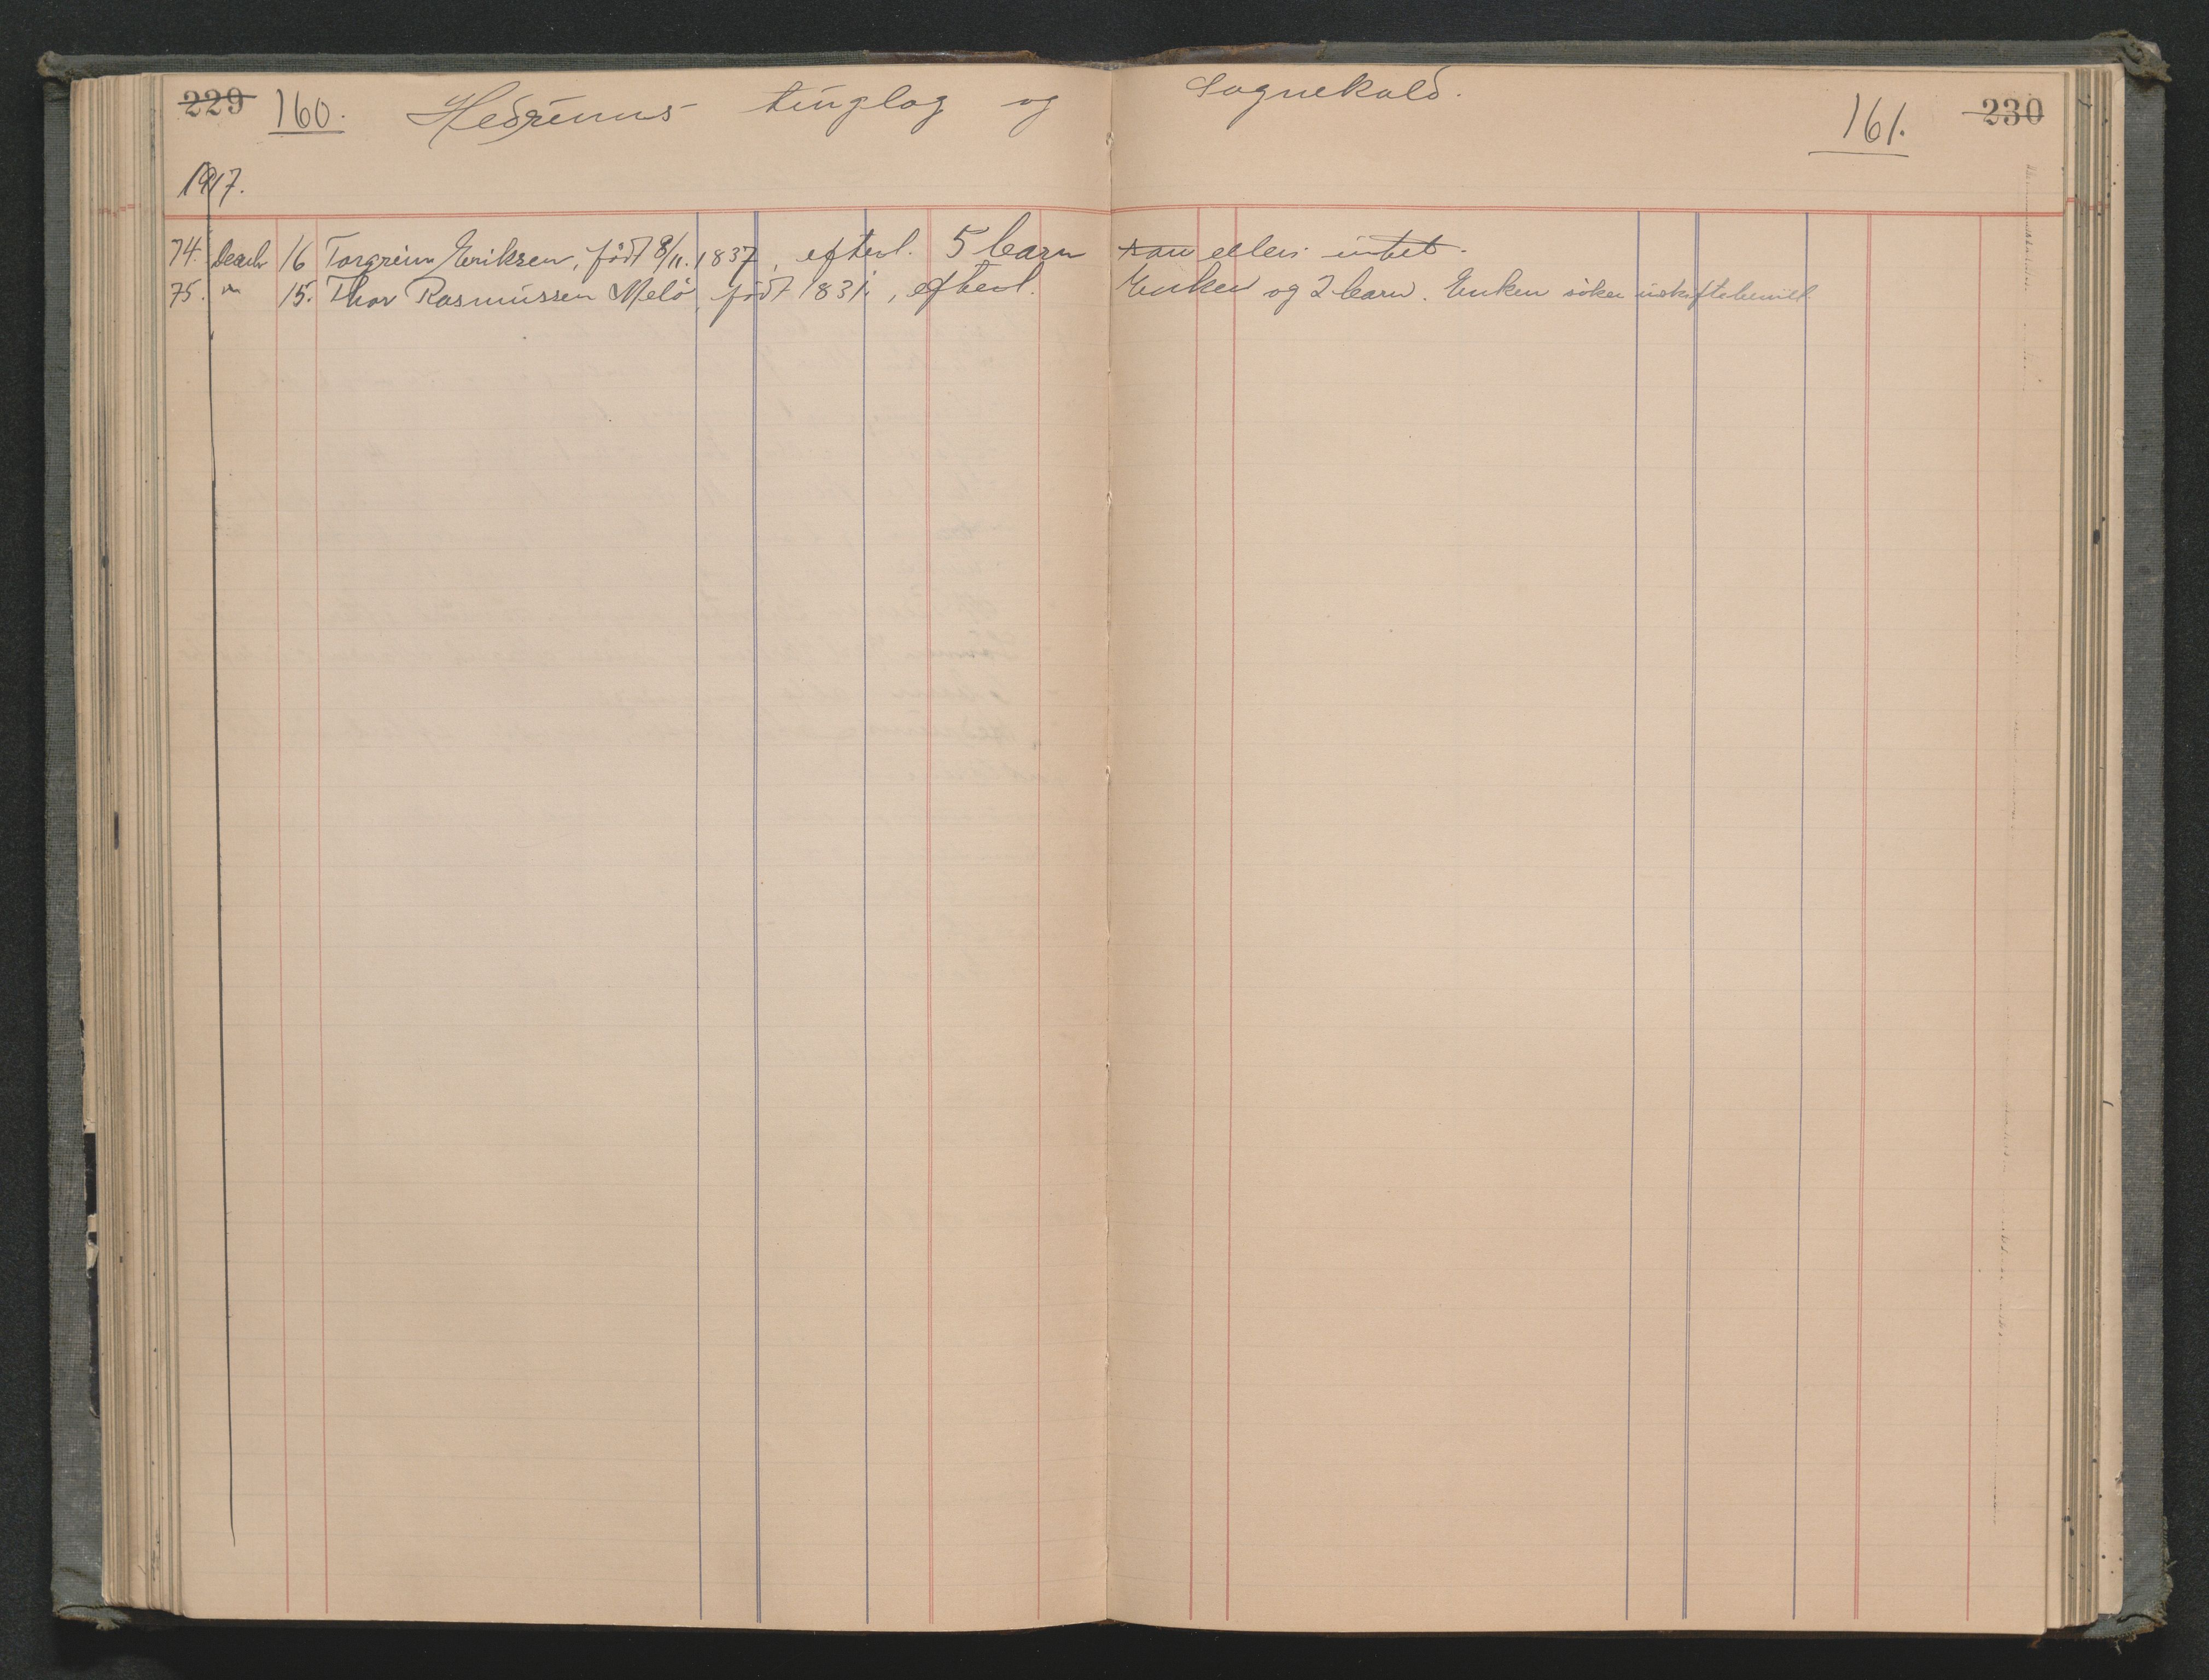 229 160. Hedrums tinglag og Sognekald. 161. 230
1917.
74. Decbr 16 Torgrim Eriksen, født 8/11. 1837, efterl. 5 barn ellers intet.
75. " 15. Thor Rasmussen Melø, født 1831, efterl. Enken og 2 barn. Enken søker uskiftebevill.